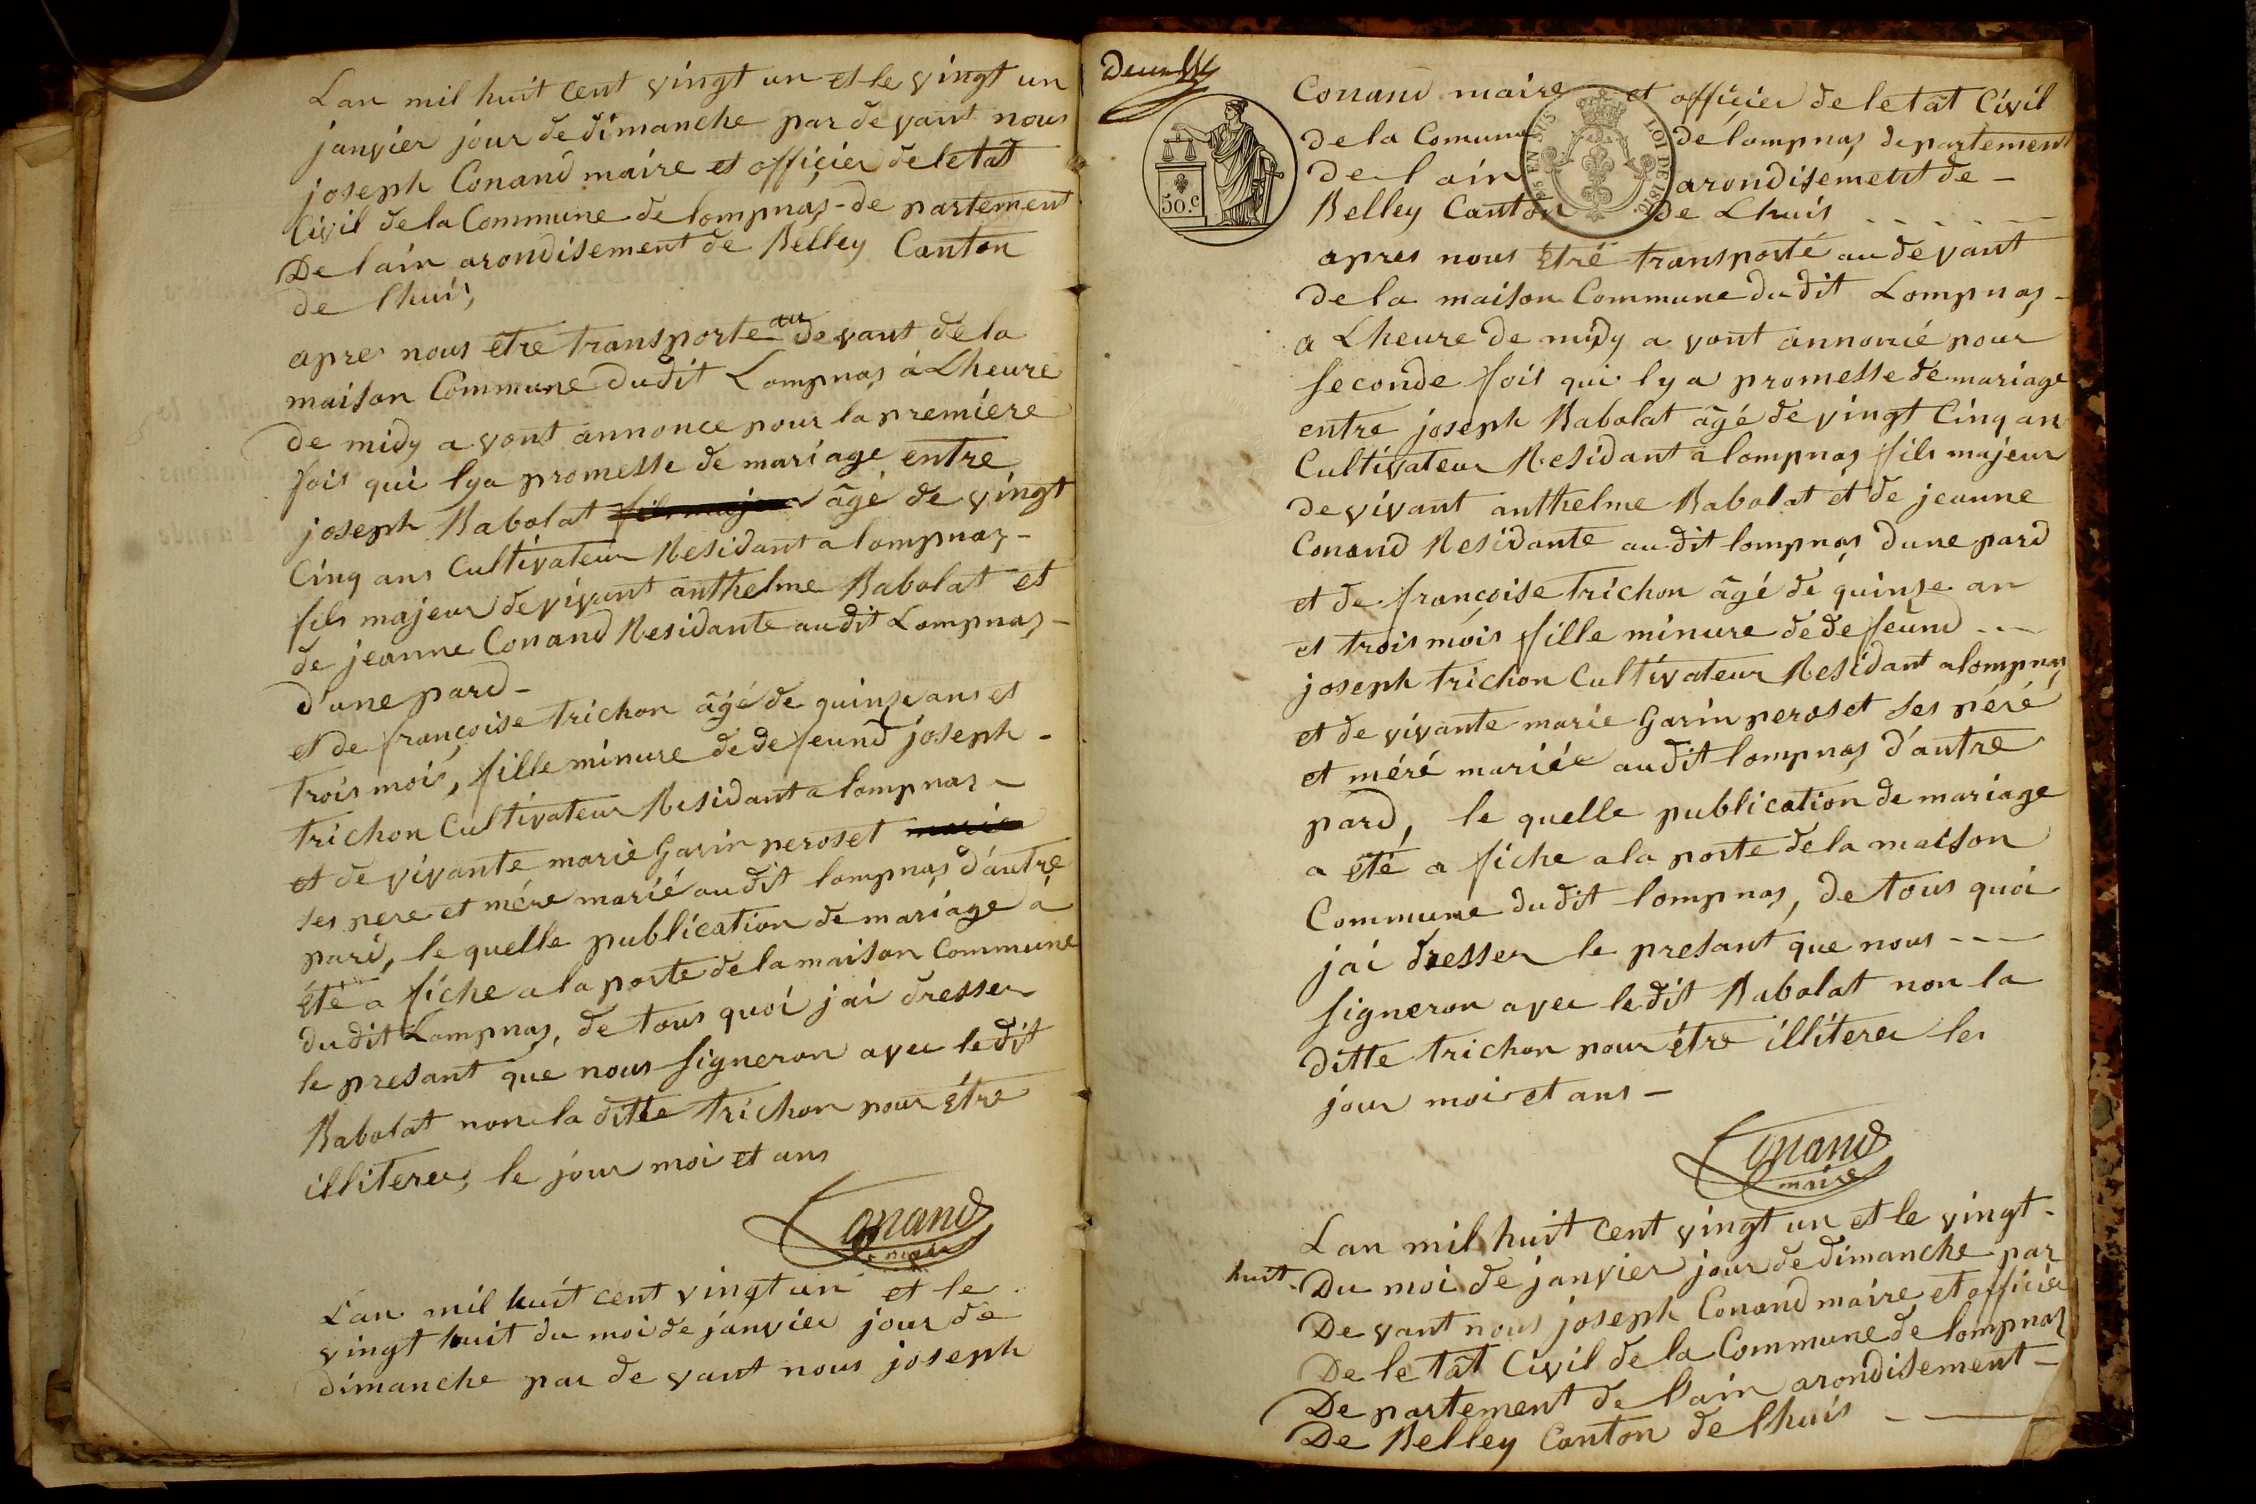 Lan mil huit cent vingt un et le vingt un
janvier jour de dimanche par de vant nous
joseph Conand maire et officier de letat
Civil de la Commune de lompnas de partement
De lain arondisement de Belley Canton
de lhuis,
apres nous etre transporte au devant de la
maison Commune dudit Lompnas à Lheure
de midy a vont annonce pour la premiere
fois qui lya promesse de mariage entre
joseph Babolat fils majeur âgé de vingt
Cinq ans Cultivateur Residant a lompnas -
fils majeur de vivant anthelme Babolat et
de jeanne Conand Residante audit Lompnas -
d'une pard -
et de françoise trichon âgé de quinse ans et
trois mois, fille minure dé de feund joseph -
trichon Cultivateur Residant a lompnas -
et de vivante marie Garin peroset marie
ses pere et mére marié audit lompnas d'autre
pard, le quelle publication de mariage à
été a fiche a la porte de la maison Commune
dudit Lompnas, de tous quoi jai dresser
le presant que nous signeron avec ledit
Babolat non la ditte trichon pour étre
illiterer, le jour moi et ans
Conand
maire
L'an mil huit cent vingt un et le
vingt huit du moi de janvier jour de
dimanche par de vant nous joseph
50.c
EN SUS
LOI DE 1816.
Conand maire et officier de letat Civil
de la Comune de lompnas departement
de l ain arondisement de -
Belley Canton De Lhuis
apres nous étré transporté au devant
de la maison Commune du dit Lompnas -
a Lheure de midy a vont annoncé pour
seconde fois qui l y a promesse dé mariage
entre joseph Babolat âgé de vingt Cinq an
Cultivateur Residant a lompnas fils majeur
de vivant anthelme Babolat et de jeanne
Conand Residante au dit lompnas d'une pard
et de françoise trichon âgé dé quinse an
et trois mois fille minure dé de feund
joseph trichon Cultivateur Residant a lompnas
et de vivante marie Garin peroset ses péré
et méré mariée au dit lompnas d'autre
pard, le quelle publication de mariage
a été a fiche a la porte de la maison
Commune du dit lompnas, de tous quoi
jai dresser le presant que nous
signeron avec ledit Babolat non la
ditte trichon pour étre illiterer les
jour moi et ans -
Conand
maire
Lan mil huit cent vingt un et le vingt -
huit - Du moi de janvier jour de dimanche par
De vant nous joseph Conand maire et officier
De le tat Civil de la Commune de lompnas
De partement de l'ain arondisement -
De Belley Canton de lhuis